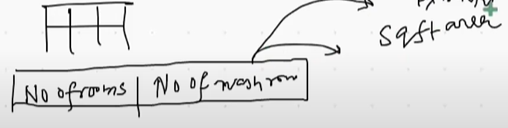 Sqft area
No of rooms | No of washroo